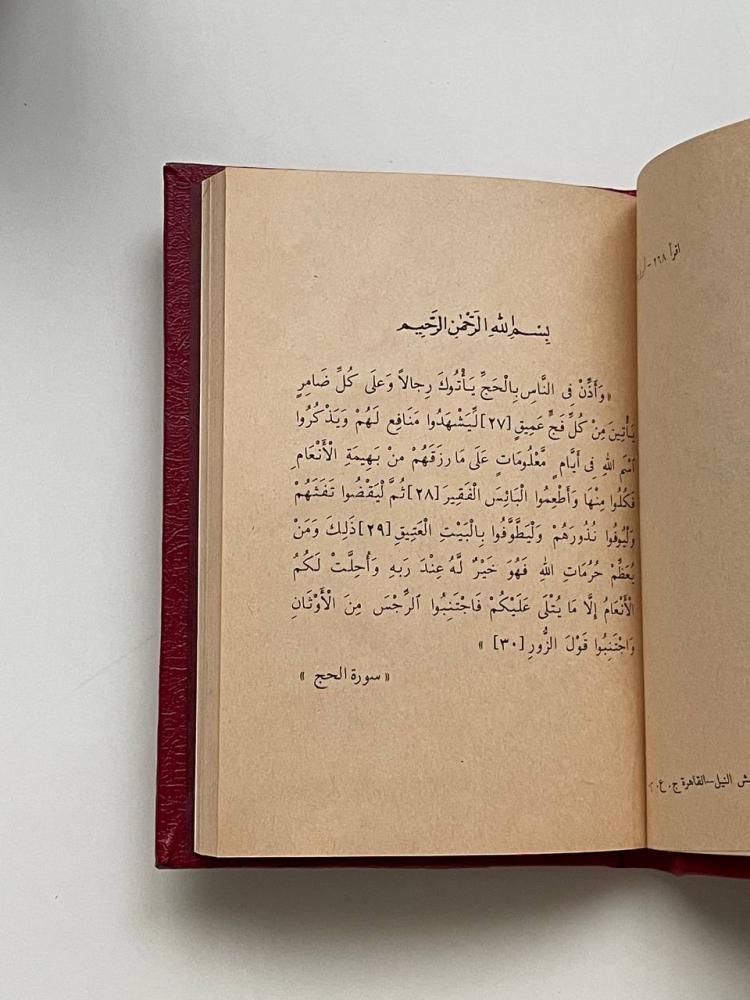 اقرأ ٢٦٨ -
ش النيل - القاهرة ج. ع. م.
بِسْمِ اللهِ الرَّحْمٰنِ الرَّحِيمِ
« وَأَذِّنْ فِى النَّاسِ بِالْحَجِّ يَأْتُوكَ رِجالاً وَعلَى كُلِّ ضَامِرٍ
يَأْتِينَ مِنْ كُلِّ فَجٍّ عَمِيقٍ [٢٧] لِّيَشْهَدُوا مَنَافِع لَهُمْ وَيَذْكُرُوا
اسْمَ اللهِ فِى أَيَّامٍ مَّعْلُومَاتٍ عَلَى مَا رزَقَهُمْ منْ بَهِيمَةِ الْأَنْعَامِ
فَكُلُوا مِنْهَا وَأَطْعِمُوا الْبَائِسَ الْفَقِيرَ [٢٨] ثُمَّ لْيَقْضُوا تَفَثَهُمْ
وَلْيُوفُوا نُذُورَهُمْ وَلْيَطَّوَّفُوا بِالْبَيْتِ الْعَتِيقِ [٢٩] ذَلِكَ وَمَنْ
يُعَظِّمْ حُرُمَاتِ اللهِ فَهُوَ خَيْرٌ لَّهُ عِنْدَ رَبِهِ وَأُحِلَّتْ لَكُمُ
الْأَنْعَامُ إِلَّا مَا يُتْلَى عَلَيْكُمْ فَاجْتَنِبُوا الرِّجْسَ مِنَ الْأَوْثَانِ
وَاجْتَنِبُوا قَوْلَ الزُّورِ [٣٠] »
« سورة الحج »